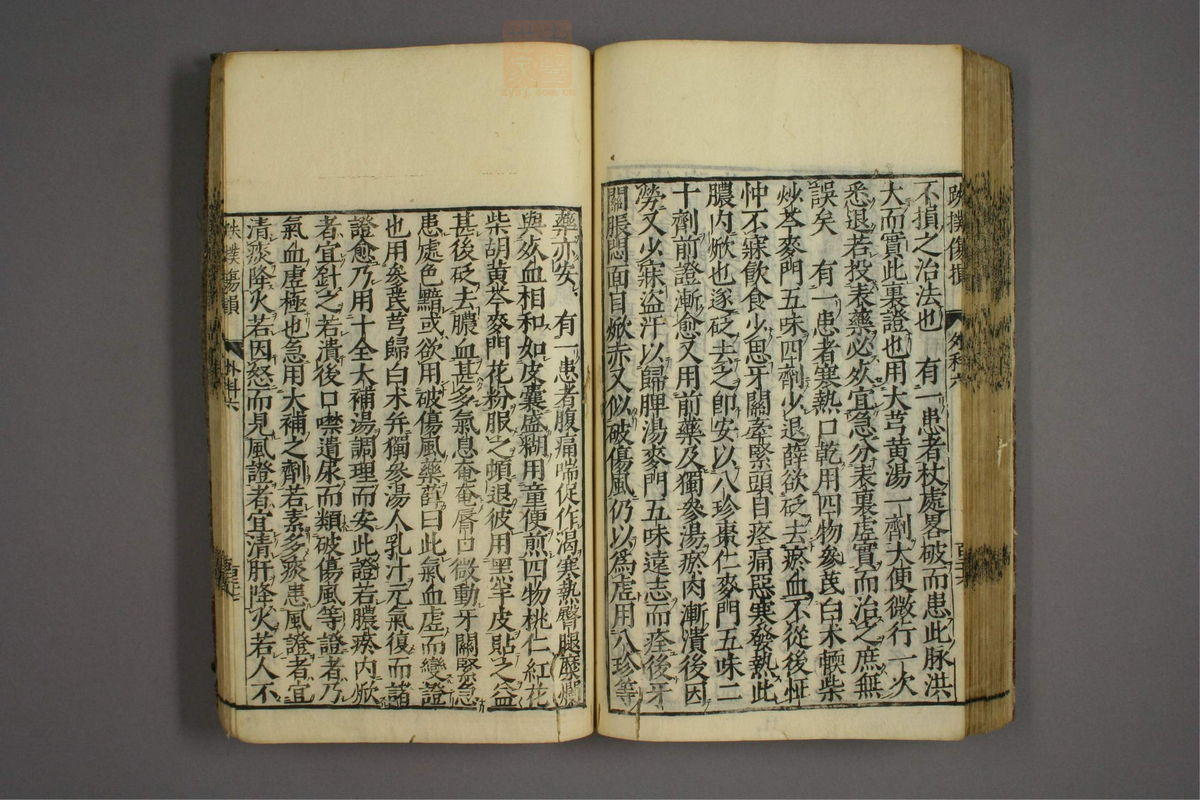 跌撲傷損 外科六
不損之治法也 有一患者杖處畧破而患此脉洪
大而實此裏證也用大芎黄湯一劑大便微行一次
悉退若投表藥必死宜急分表裏虛實而治之庶無
誤矣 有一患者寒熱口乾用四物參芪白术輭柴
炒芩麥門五味四劑少退薛欲砭去瘀血不從後怔
忡不寐飲食少思牙關牽緊頭目疼痛惡寒發熱此
膿內焮也遂砭去之卽安以八珍棗仁麥門五味二
十劑前證漸愈又用前藥及獨參湯瘀肉漸潰後因
勞又少寐盜汗以歸脾湯麥門五味遠志而痊後牙
關脹悶面目焮赤又似破傷風仍以爲虛用八珍等
藥亦安 有一患者腹痛喘促作渴寒熱臀腿糜爛
與死血相和如皮囊盛糊用童便煎四物桃仁紅花
柴胡黄芩麥門花粉服之頓退彼用黑羊皮貼之益
甚後砭去膿血甚多氣息奄奄脣口微動牙關緊急
患處色黯或欲用破傷風藥薛曰此氣血虛而變證
也用參芪芎歸白术并獨參湯人乳汁元氣復而諸
證愈乃用十全大補湯調理而安此證若膿瘀內焮
者宜針之若潰後口噤遺尿而類破傷風等證者乃
氣血虛極也急用大補之劑若素多痰患風證者宜
清痰降火若因怒而見風證者宜清肝降火若人不
跌撲傷損 外科六